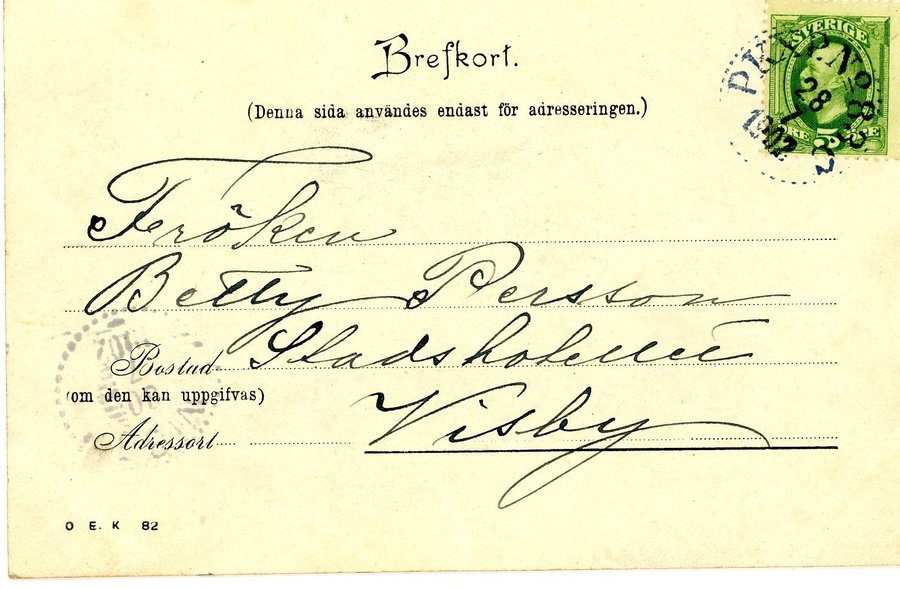 Brefkort.
(Denna sida användes endast för adresseringen.)
SVERIGE
PKXP. Nº
28
7
1902
5
ÖRE
Fröken
Betty Persson
Bostad Stadshotellet
(om den kan uppgifvas)
Adressort Visby
O E. K 82